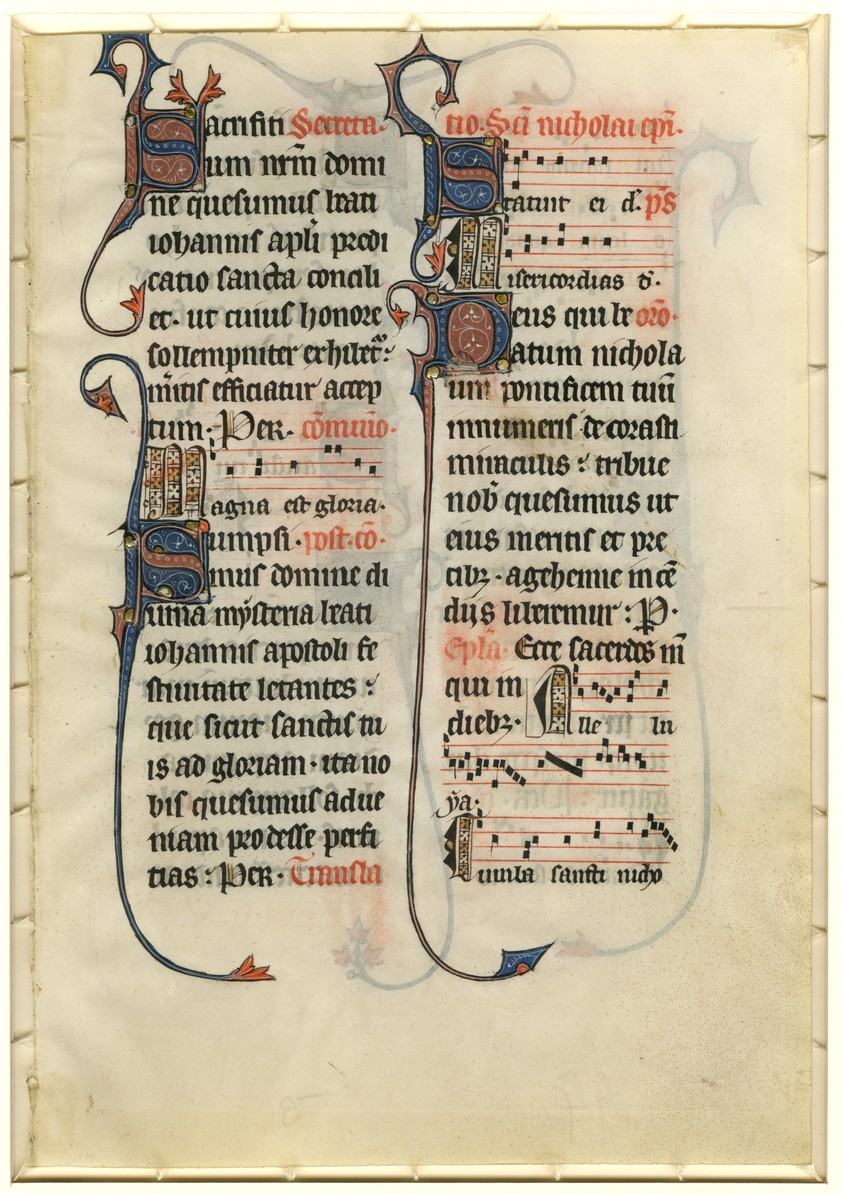 Sacrifiti Secreta.
um nr̄m domi
ne quesumus beati
iohannis apl̄i predi
catio sancta concili
et · ut cuius honore
sollempniter exhibet᷒ :
m̄itis efficiatur accep
tum · Per · cōmunio ·
Magna est gloria ·
Sumpsi · post · cō ·
mus domine di
uina mysteria beati
iohannis apostoli fe
stiuitate letantes :
que sicut sanctis tu
is ad gloriam · ita no
bis quesumus adue
niam prodesse perfi
tias : Per · Transla
tio · Sc̄i nicholai ep̄i ·
Statuit ei d̄ · p̄s
Misericordias d̄ ·
Deus qui be orō ·
atum nichola
um pontificem tuū
innumeris decorasti
miraculis : tribue
nob̄ quesumus ut
eius meritis et pre
cibꝫ · a gehenne incē
dijs liberemur : P ·
Ep̄la · Ecce sacerdos m̄
qui in
diebꝫ · Alle lu
ya ·
Tumba sancti nicho